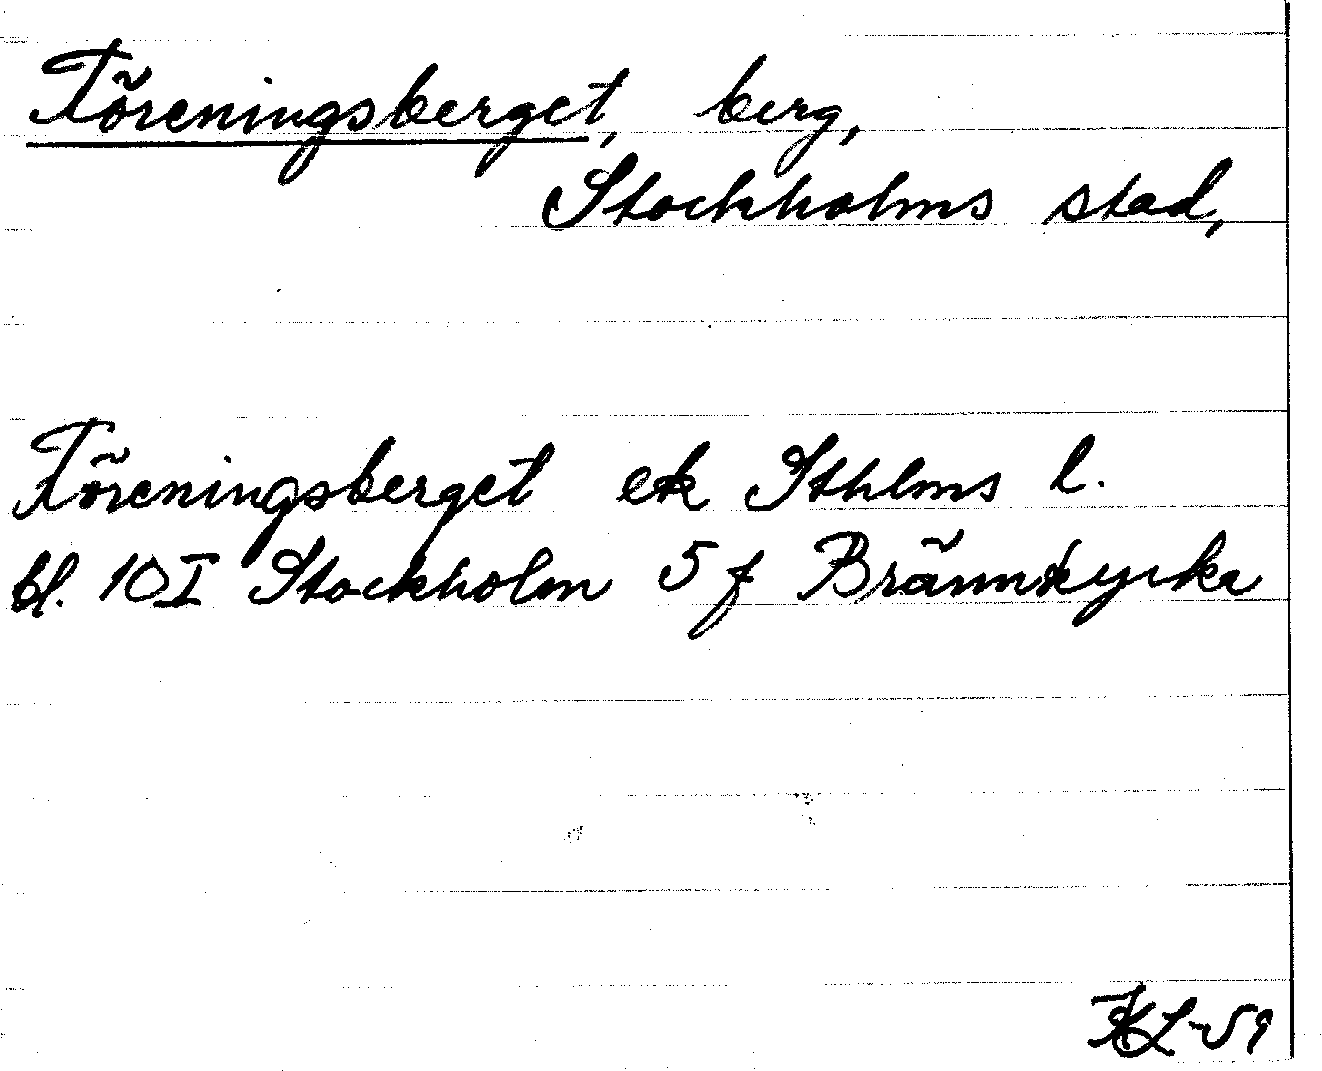 Föreningsberget, berg,
Stockholms stad,
Föreningsberget ek Sthlms l.
bl. 10I Stockholm 5 f Brännkyrka
KL-59